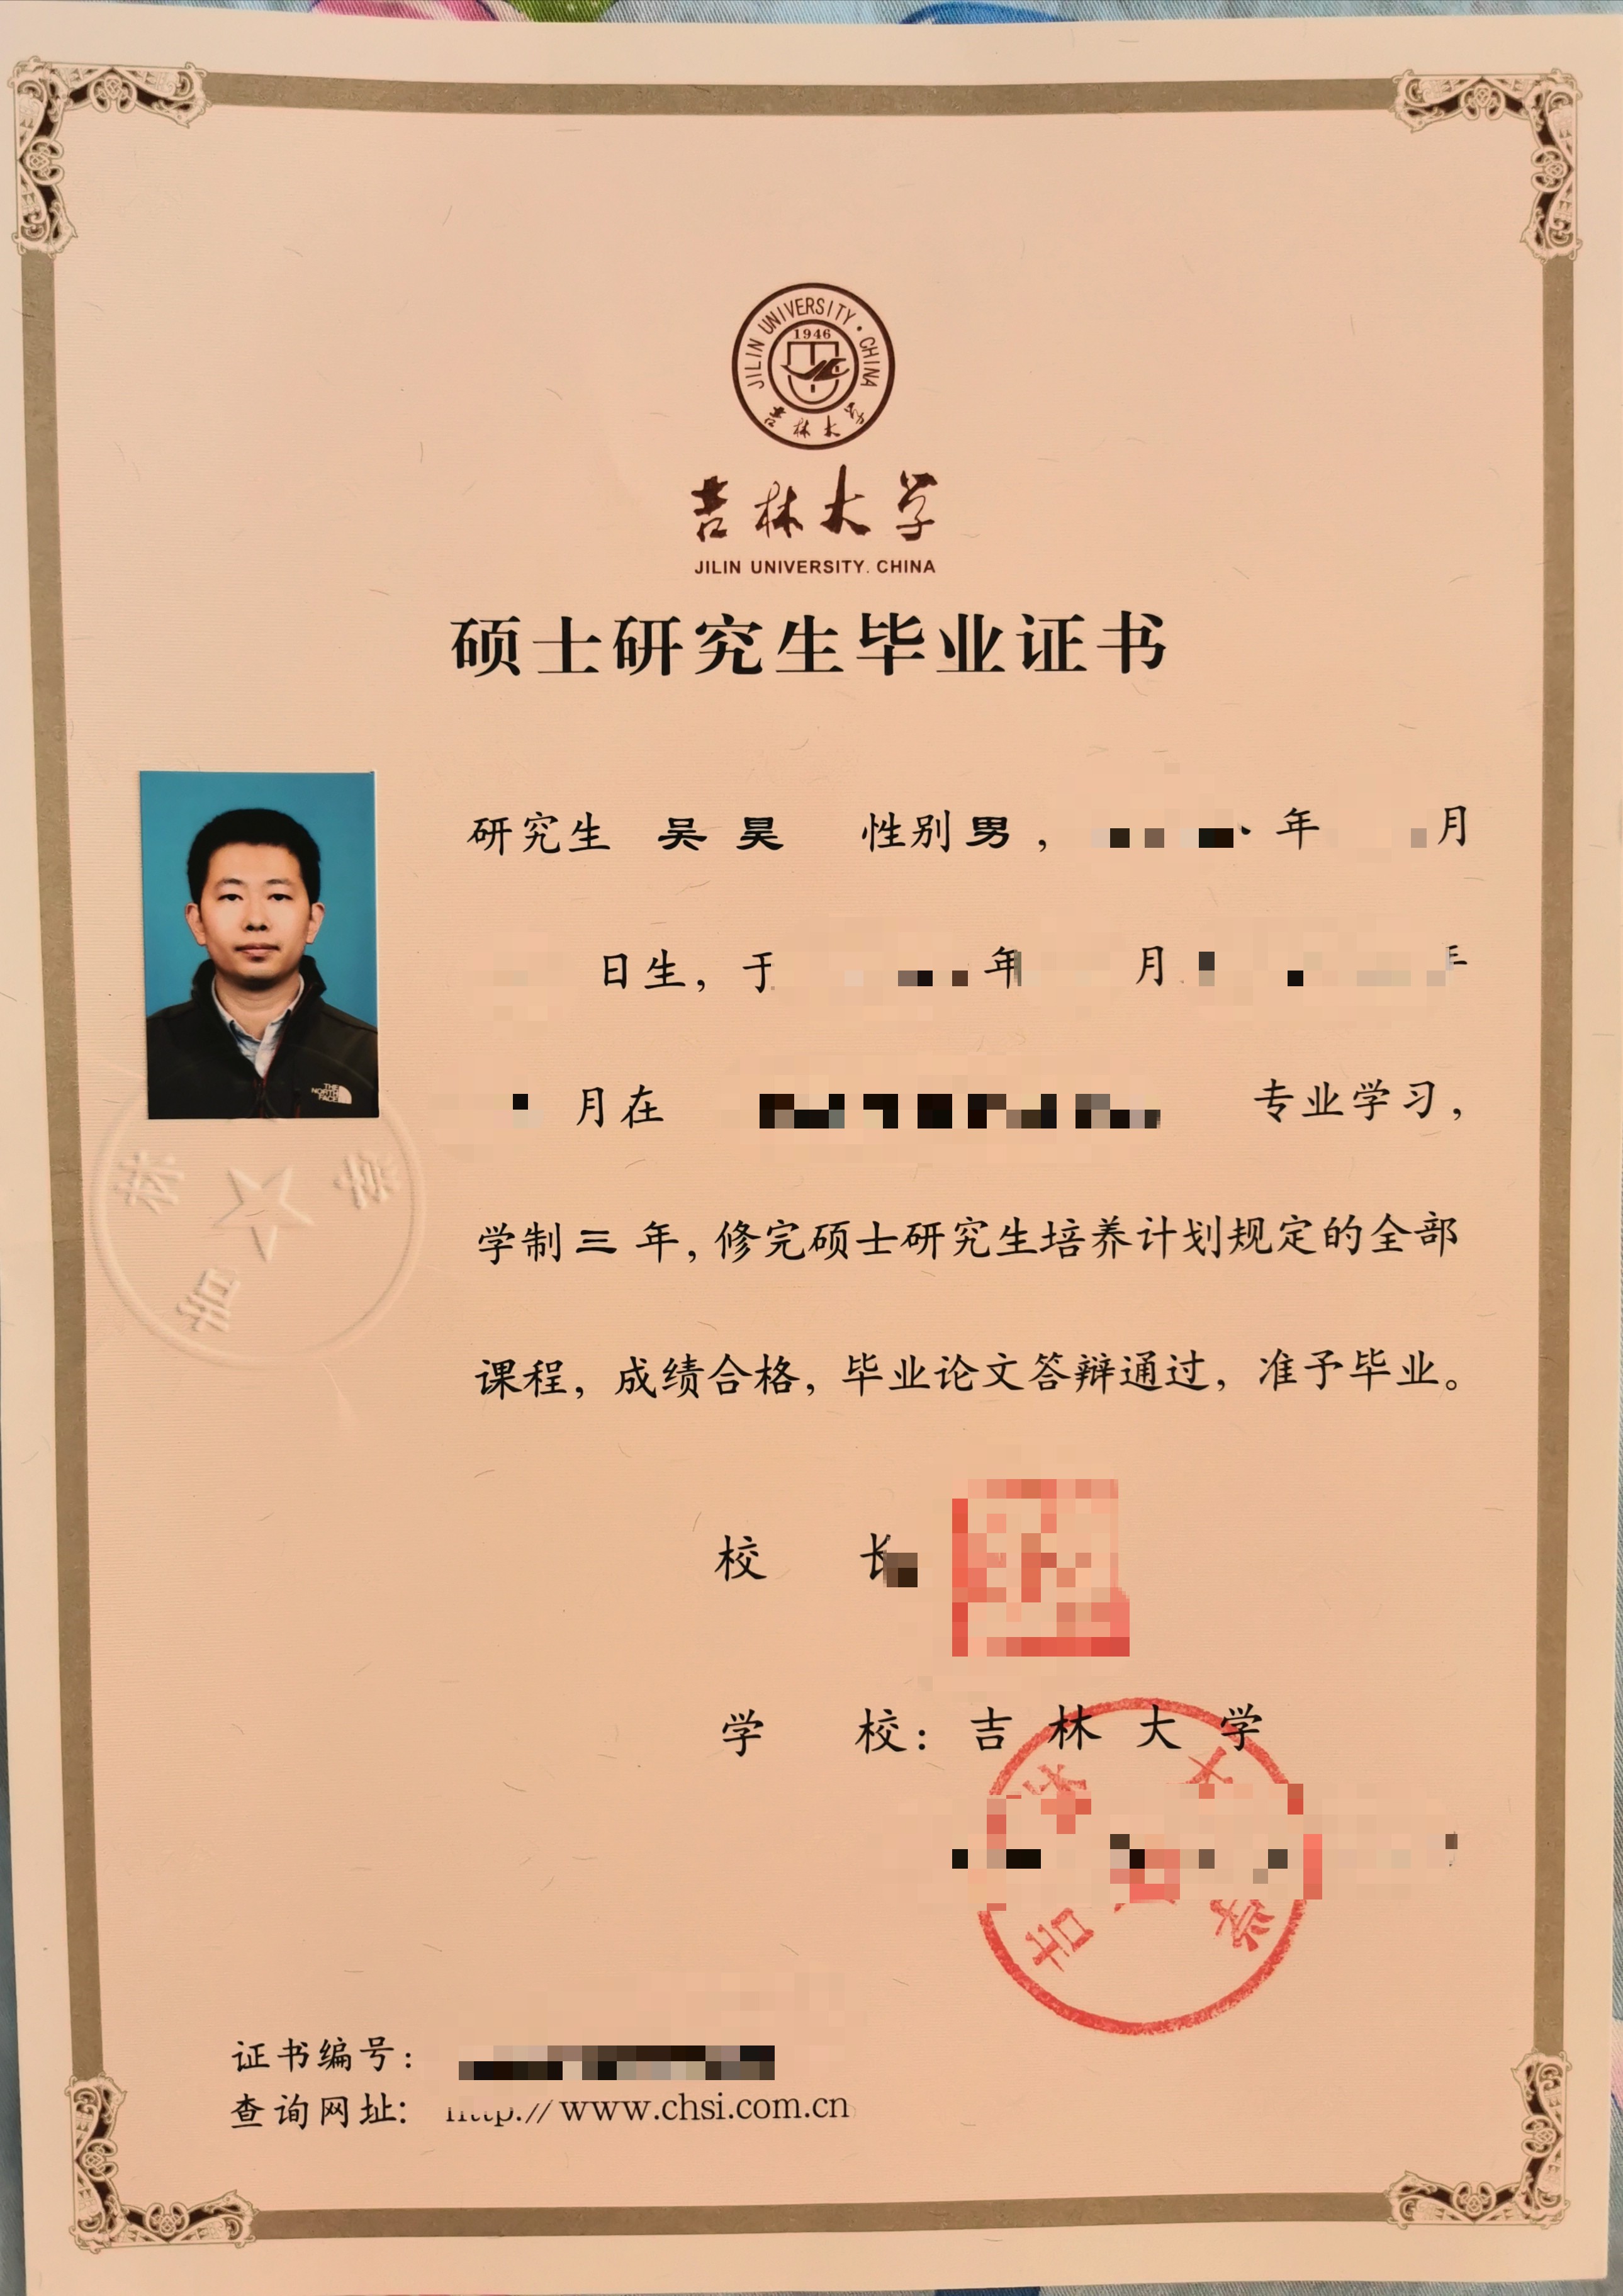 JILIN UNIVERSITY · CHINA
1946
吉林大学
吉林大学
JILIN UNIVERSITY. CHINA
硕士研究生毕业证书
研究生 吴昊 性别男， 年 月
日生，于 年 月
月在 专业学习，
学制三年，修完硕士研究生培养计划规定的全部
课程，成绩合格，毕业论文答辩通过，准予毕业。
THE NORTH FACE
校 长
学 校：吉林大学
证书编号：
查询网址：http://www.chsi.com.cn